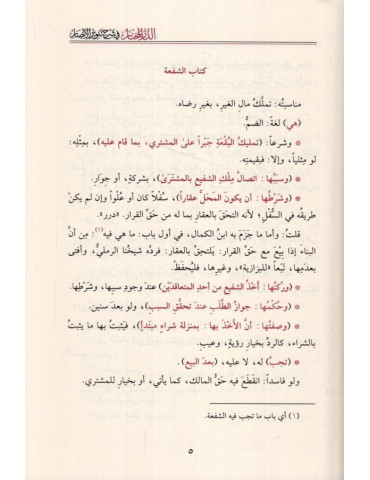 الدر المختار في شرح تنوير الأبصار
كتاب الشفعة
مناسبتُه: تملُّكُ مالِ الغيرِ، بغيرِ رضاه.
(هي) لغةً: الضمُّ.
* وشرعاً: (تمليكُ البُقْعَةِ جَبْراً على المشتري، بما قام عليه)، بمِثْلِه:
لو مِثْلياً، وإلا: فبقيمتِه.
* (وسببُها: اتصالُ مِلْكِ الشفيعِ بالمشترَىٰ)، بشركةٍ، أو جِوَارٍ.
* (وشَرْطُها: أن يكونَ المَحَلُّ عقاراً)، سُفْلاً كان أو عُلُواً وإن لم يكن
طريقُه في السُّفْلِ؛ لأنه التَحَقَ بالعقارِ بما له من حَقِّ القرار. «درر».
قلتُ: وأما ما جَزَمَ به ابنُ الكمال، في أول باب: ما هي فيه(١): مِن أنَّ
البناءَ إذا بِيْعَ مع حَقِّ القرار: يَلتحِقُ بالعقار: فردَّه شيخُنا الرمليُّ، وأفتى
بعدمِها، تَبَعاً «للبزازية»، وغيرِها، فليُحفَظْ.
* (ورُكنُها: أَخْذُ الشفيعِ من أحدِ المتعاقدَيْنِ) عندَ وجودِ سببِها، وشَرْطِها.
* (وحُكْمُها: جوازُ الطَّلَبِ عندَ تحقُّقِ السبب)، ولو بعدَ سنين.
* (وصفتُها: أنَّ الأَخْذَ بها: بمنزلةِ شراءٍ مبتدَأٍ)، فيَثبتُ بها ما يثبتُ
بالشراء، كالردِّ بخيارِ رؤيةٍ، وعيبٍ.
* (تجبُ) له، لا عليه، (بعدَ البيع).
ولو فاسداً: انقَطَعَ فيه حَقُّ المالك، كما يأتي، أو بخيارٍ للمشتري.
(١) أي باب ما تجب فيه الشفعة.
٥